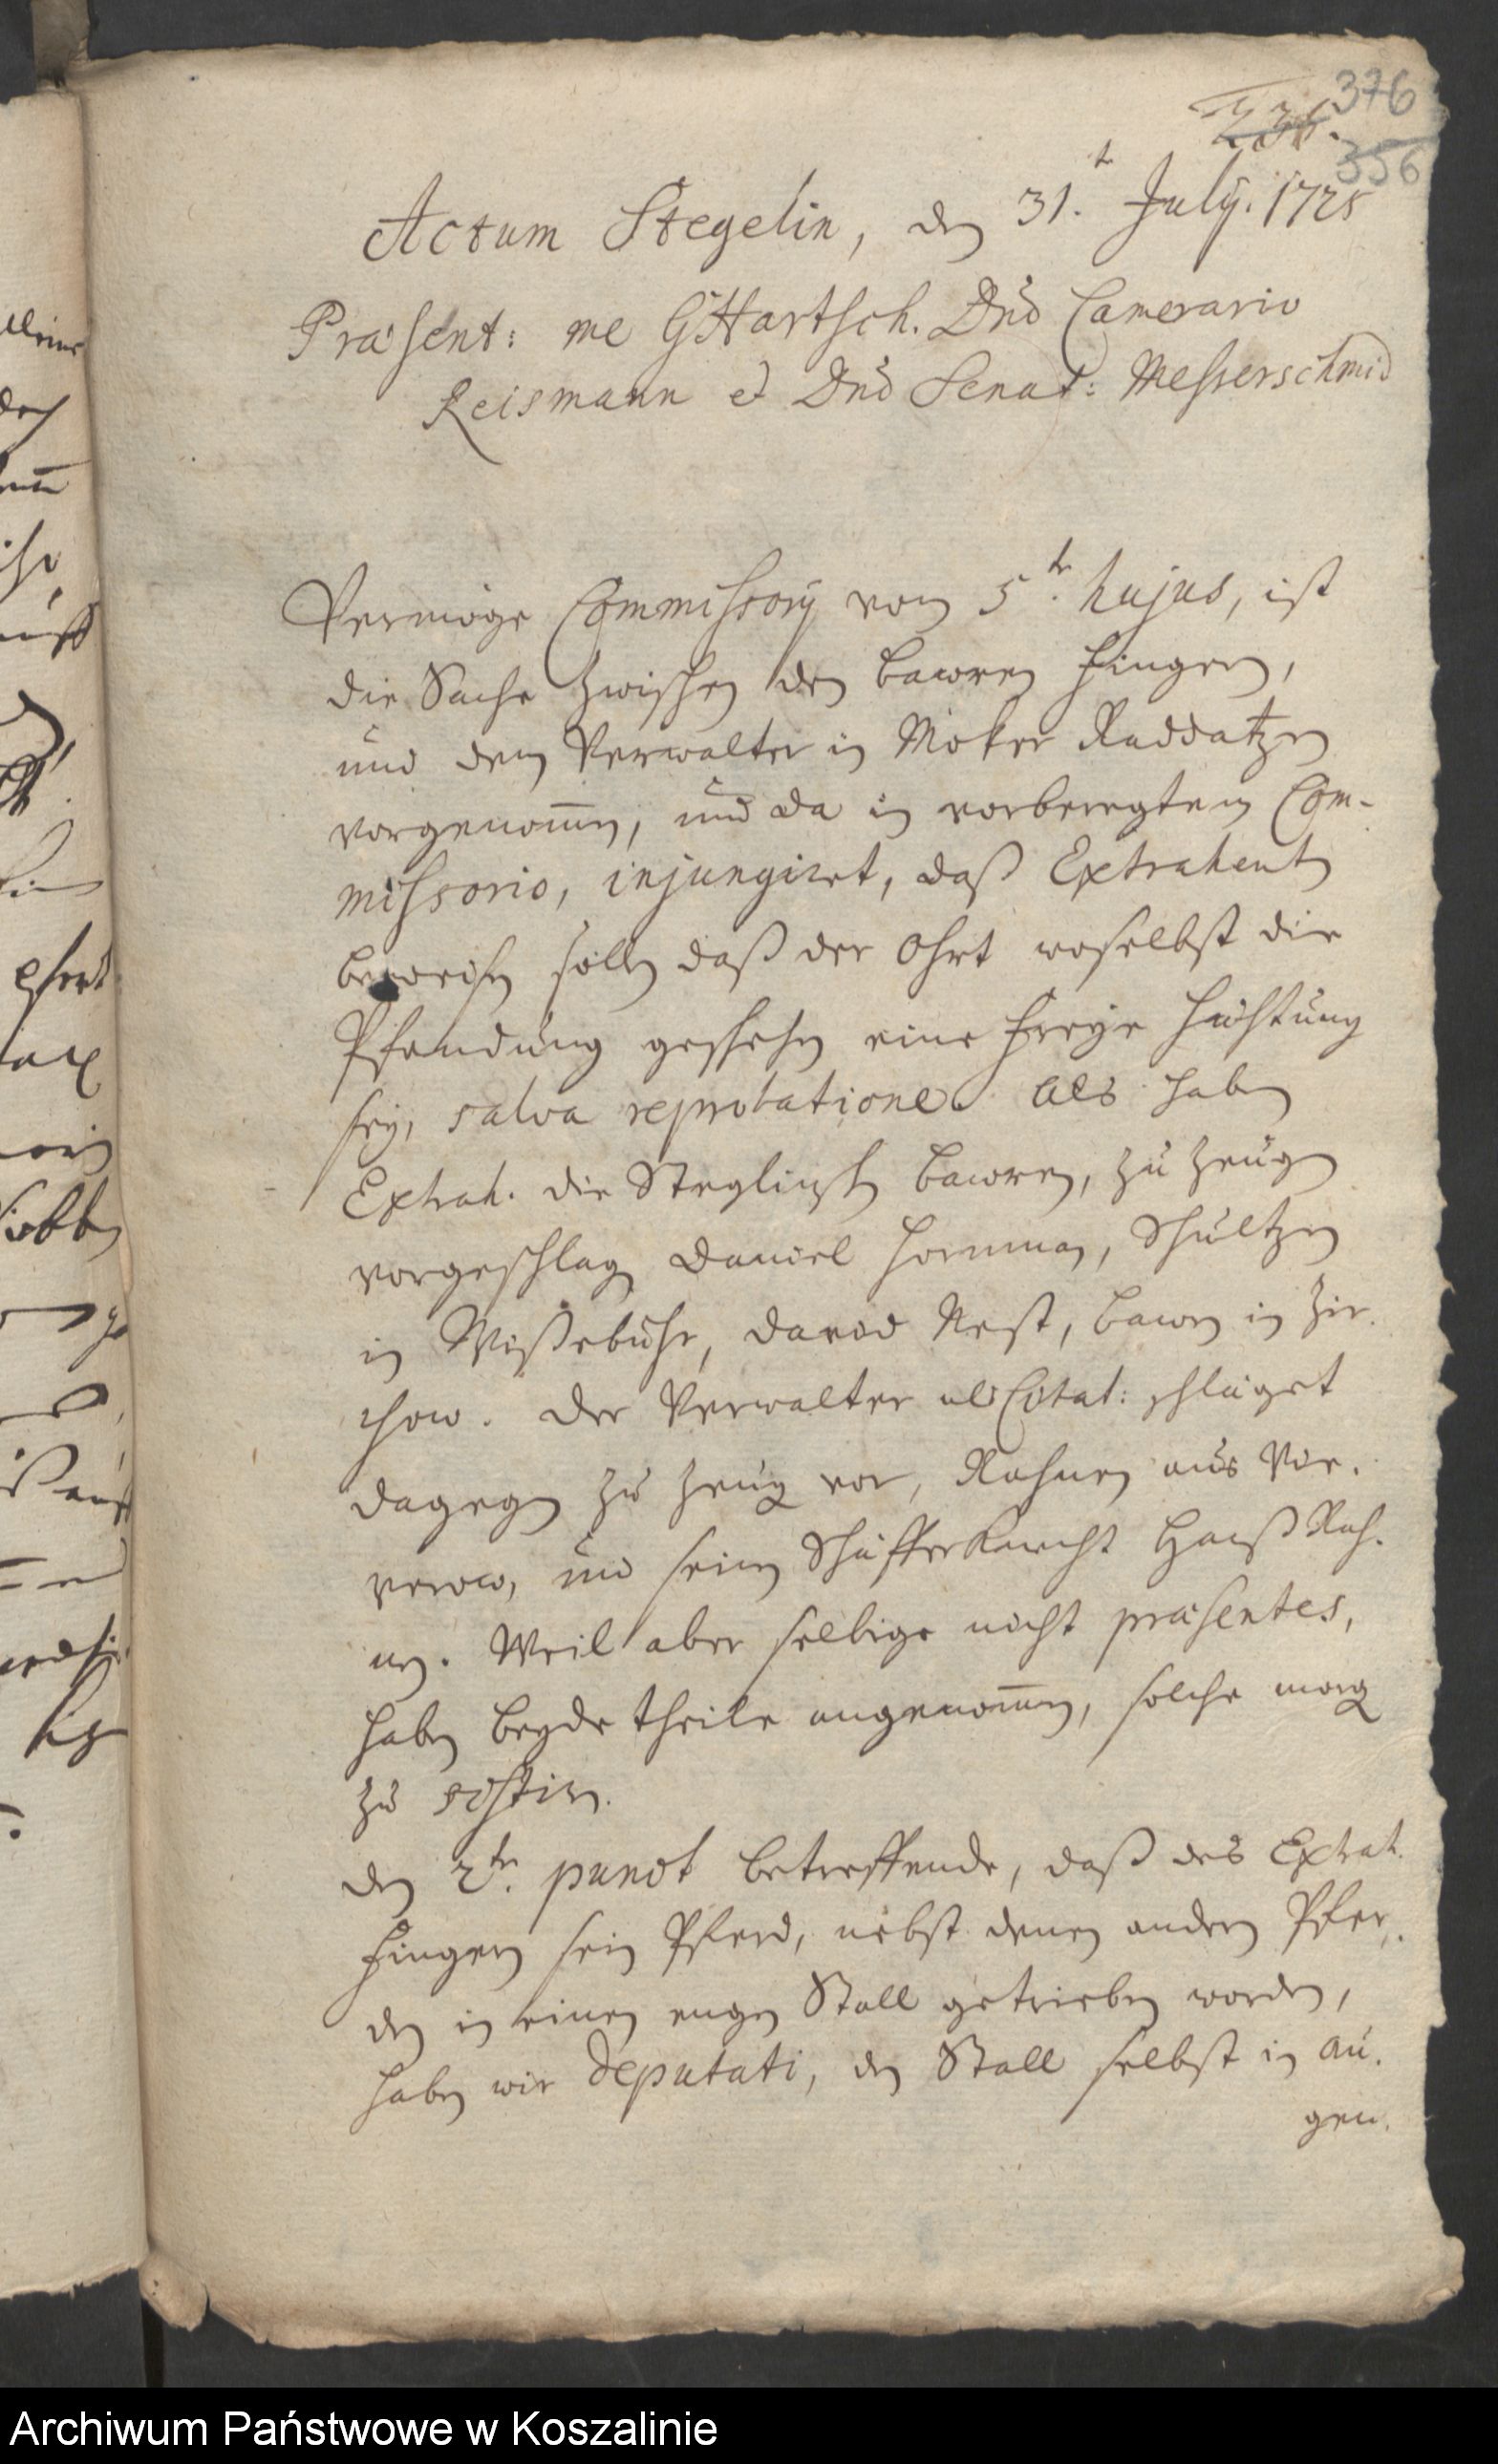 376
356
Actum Stegelin, den 31.t July. 1725
Præsent: me GHartsch. Dnō Camerario
Reismann et Dnō Senat: Messerschmid
Vermöge Commissorij vom 5.tn hujus, ist
die Sache zwischen den Bawren Hingen,
und dem Verwalter in Moker Raddatzen
vorgenom̄en, und da in vorberegtem Com-
missorio, injungiret, daß Extrahent
beweisen solle daß der Ohrt woselbst die
Pfandung geschehen eine freye Hüthung
sey, salva reprobatione. Als haben
Extrah. die Steglinsch Bawren, zu Zeugen
vorgeschlagen Daniel Hornman, Schultzen
in Wißebuhr, David Nest, Bawr in Zir-
chow. Der Verwalter als Citat: schläget
dagegen zu Zeugen vor, Rahnen aus Vor-
werow, und seinen Schäffer Knecht Hanß Rah-
nen. Weil aber selbige nicht præsentes,
haben beyde theile angenom̄en, solche morgen
zu sistiren.
den 2.tn punct betreffende, daß des Extrah.
Hingen sein Pferd, nebst denen andern Pfer-
den in einen engen Stall getrieben worden,
haben wir Deputati, den Stall selbst in Au-
gen.
Archiwum Państwowe w Koszalinie